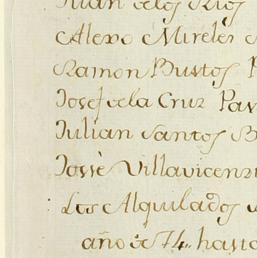 Juan delos Rios
Alexo Mireles
Ramon Bustos
Josef dela Cruz Pav
Julian Santos B
Jossè Villavicenzi
Los Alquilados
año de 74. hasta